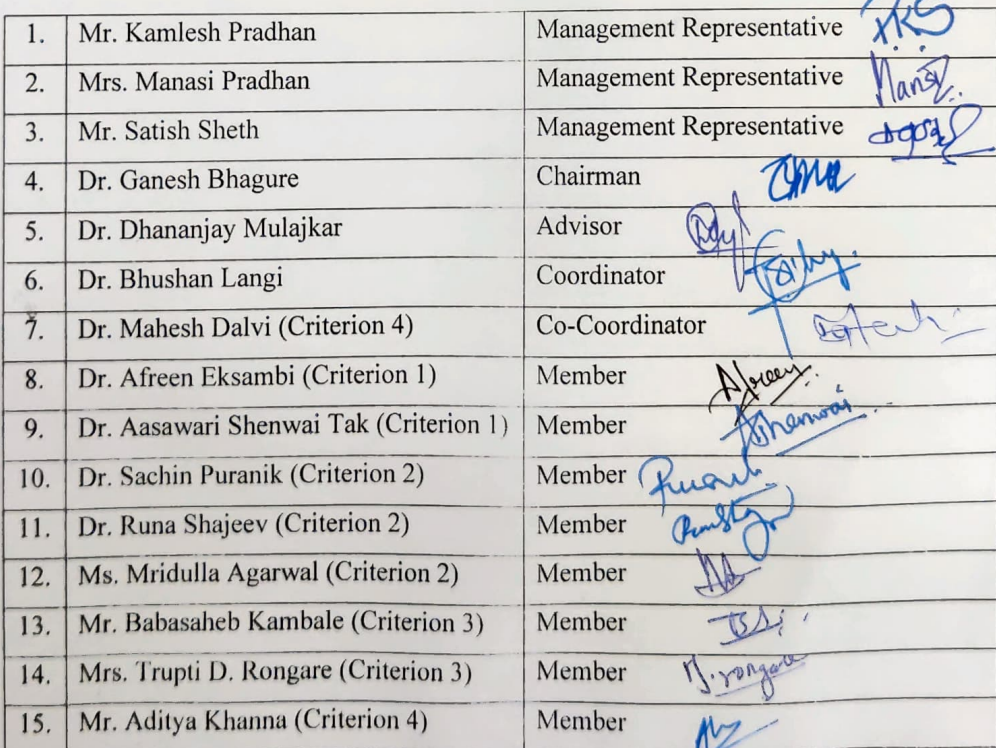 1. Mr. Kamlesh Pradhan Management Representative
2. Mrs. Manasi Pradhan Management Representative
3. Mr. Satish Sheth Management Representative
4. Dr. Ganesh Bhagure Chairman
5. Dr. Dhananjay Mulajkar Advisor
6. Dr. Bhushan Langi Coordinator
7. Dr. Mahesh Dalvi (Criterion 4) Co-Coordinator
8. Dr. Afreen Eksambi (Criterion 1) Member Afreen
9. Dr. Aasawari Shenwai Tak (Criterion 1) Member AShenwai
10. Dr. Sachin Puranik (Criterion 2) Member
11. Dr. Runa Shajeev (Criterion 2) Member
12. Ms. Mridulla Agarwal (Criterion 2) Member
13. Mr. Babasaheb Kambale (Criterion 3) Member
14. Mrs. Trupti D. Rongare (Criterion 3) Member
15. Mr. Aditya Khanna (Criterion 4) Member